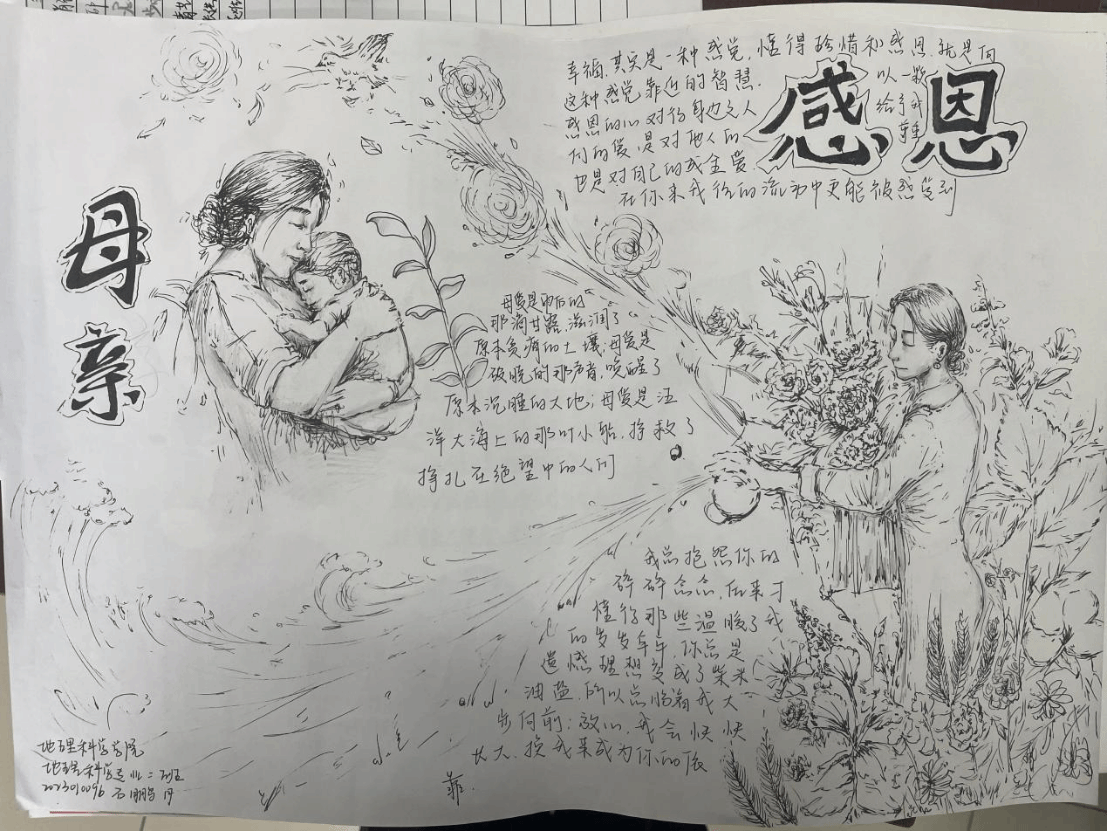 母亲
感恩
幸福,其实是一种感觉,懂得珍惜和感恩,就是向
这种感觉靠近的智慧. 以一颗
感恩的心对待身边之人
是对他人的
也是对自己的成全. 爱
在你来我往的流动中更能被感受到
母爱是雨后的
那滴甘露,滋润了
原本贫瘠的土壤;母爱是
破晓时那声音,唤醒了
原本沉睡的大地;母爱是汪
洋大海上的那叶小船,拯救了
挣扎在绝望中的人们
我总抱怨你的
碎碎念念,后来才
懂得那些温暖了我
的岁岁年年,你总是
遗憾理想变成了柴米
油盐,所以总临着我大
步向前;放心,我会快快
长大,换我来成为你的依
靠.
地理科学学院
地理科学专业二班
2023010096 石鹏丹